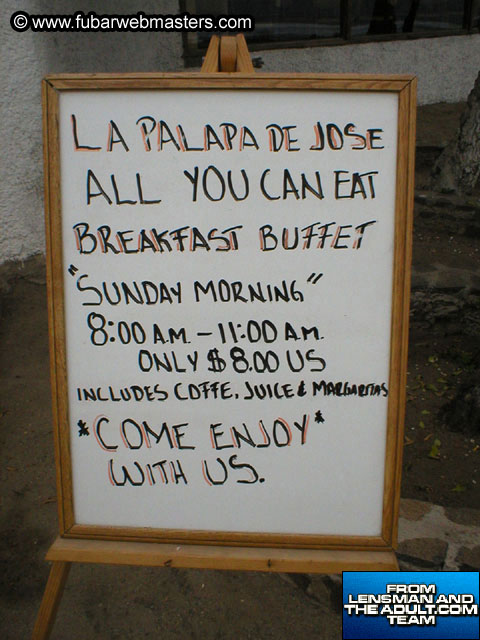 © www.fubarwebmasters.com
LA PALAPA DE JOSE
ALL YOU CAN EAT
BREAKFAST BUFFET
"SUNDAY MORNING"
8:00 A.M. - 11:00 A.M.
ONLY $8.00 US
INCLUDES COFFE, JUICE & MARGARITAS
*COME ENJOY*
WITH US.
FROM
LENSMAN AND
THE ADULT.COM
TEAM